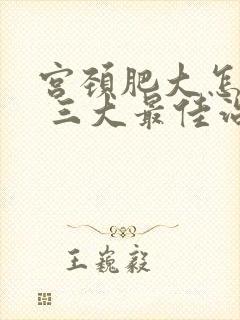 宫颈肥大怎
三大最佳治
王巍毅